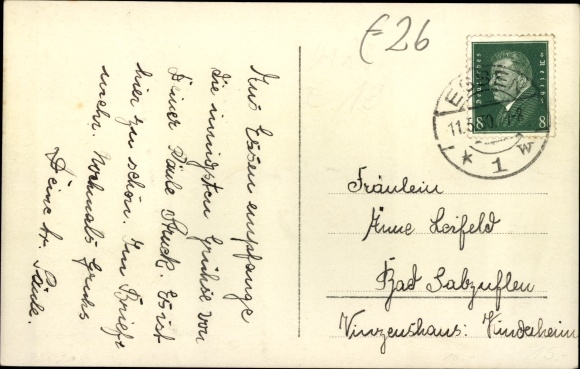 Aus Essen empfange
die innigsten Grüße von
Deiner Paula Struck. Es ist
hier zu schön. Im Briefe
mehr. Nochmals Gruß
Deine Fr. Paula.
E26
Deutsches Reich
8 8
ESSEN
11.5.30
* 1 w
Fräulein
Änne Leifeld
Bad Salzuflen
Vinzenshaus: Kinderheim